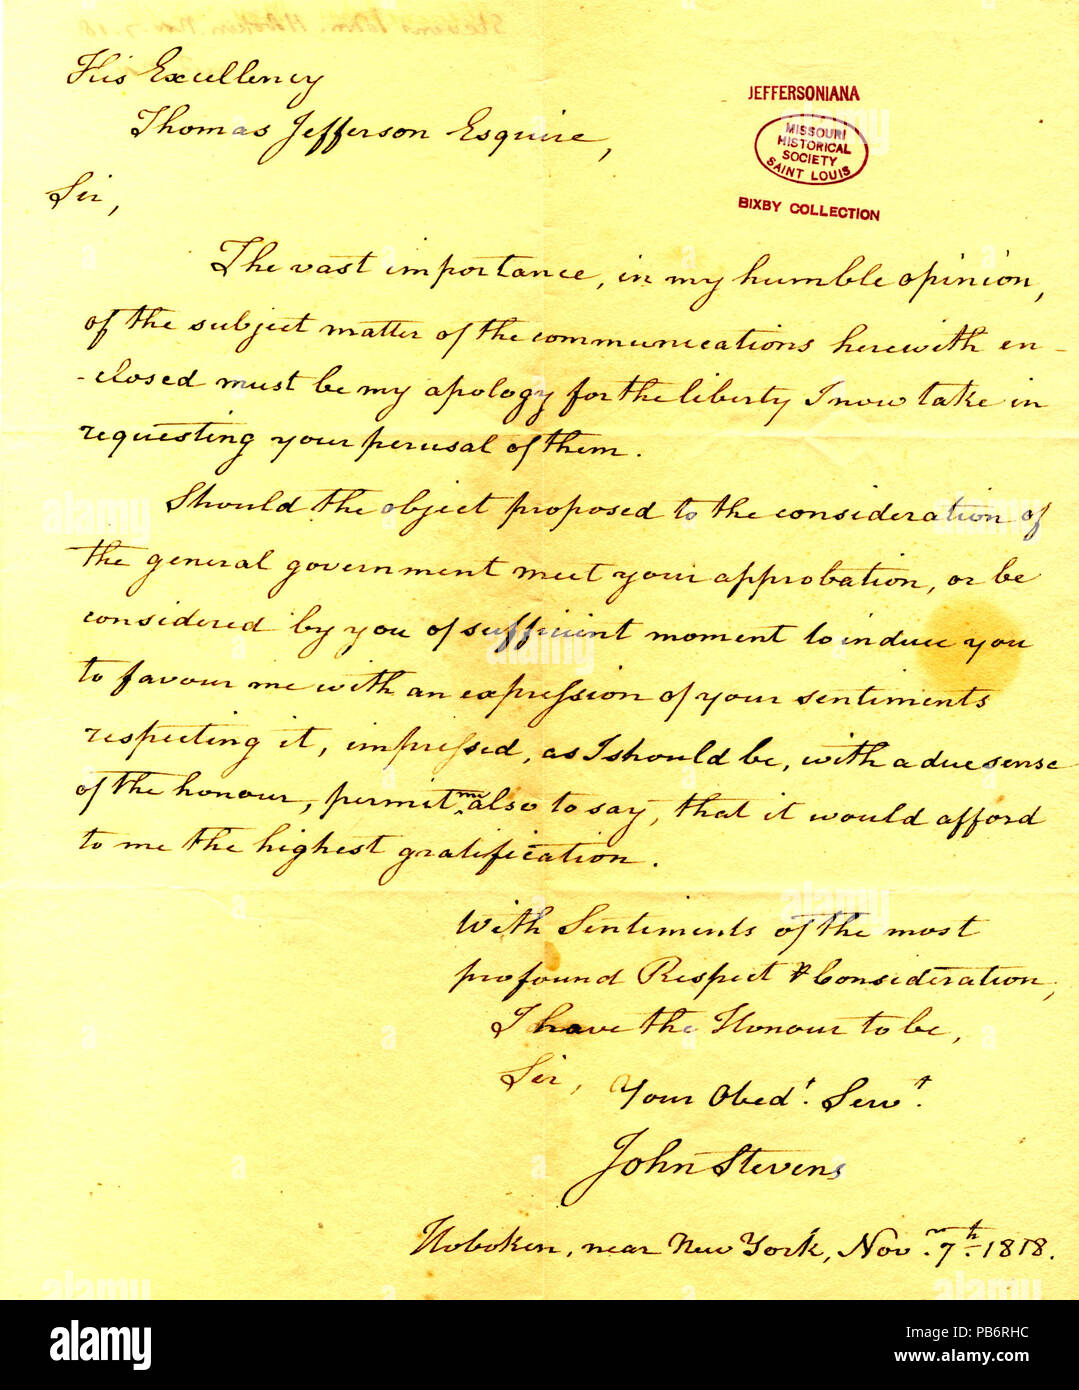 His Excellency
Thomas Jefferson Esquire,
JEFFERSONIANA
MISSOURI
HISTORICAL
SOCIETY
SAINT LOUIS
BIXBY COLLECTION
Sir,
The vast importance, in my humble opinion,
of the subject matter of the communications herewith en-
-closed must be my apology for the liberty I now take in
requesting your perusal of them.
Should the object proposed to the consideration of
the general government meet your approbation, or be
considered by you of sufficient moment to induce you
to favour me with an expreſsion of your sentiments
respecting it, impreſsed, as I should be, with a due sense
of the honour, permit me also to say, that it would afford
to me the highest gratification.
With Sentiments of the most
profound Respect & Consideration,
I have the Honour to be,
Sir,
Your Obedt. Servt.
John Stevens
Hoboken, near New York, Novm. 7th. 1818.
alamy
Image ID: PB6RHC
www.alamy.com